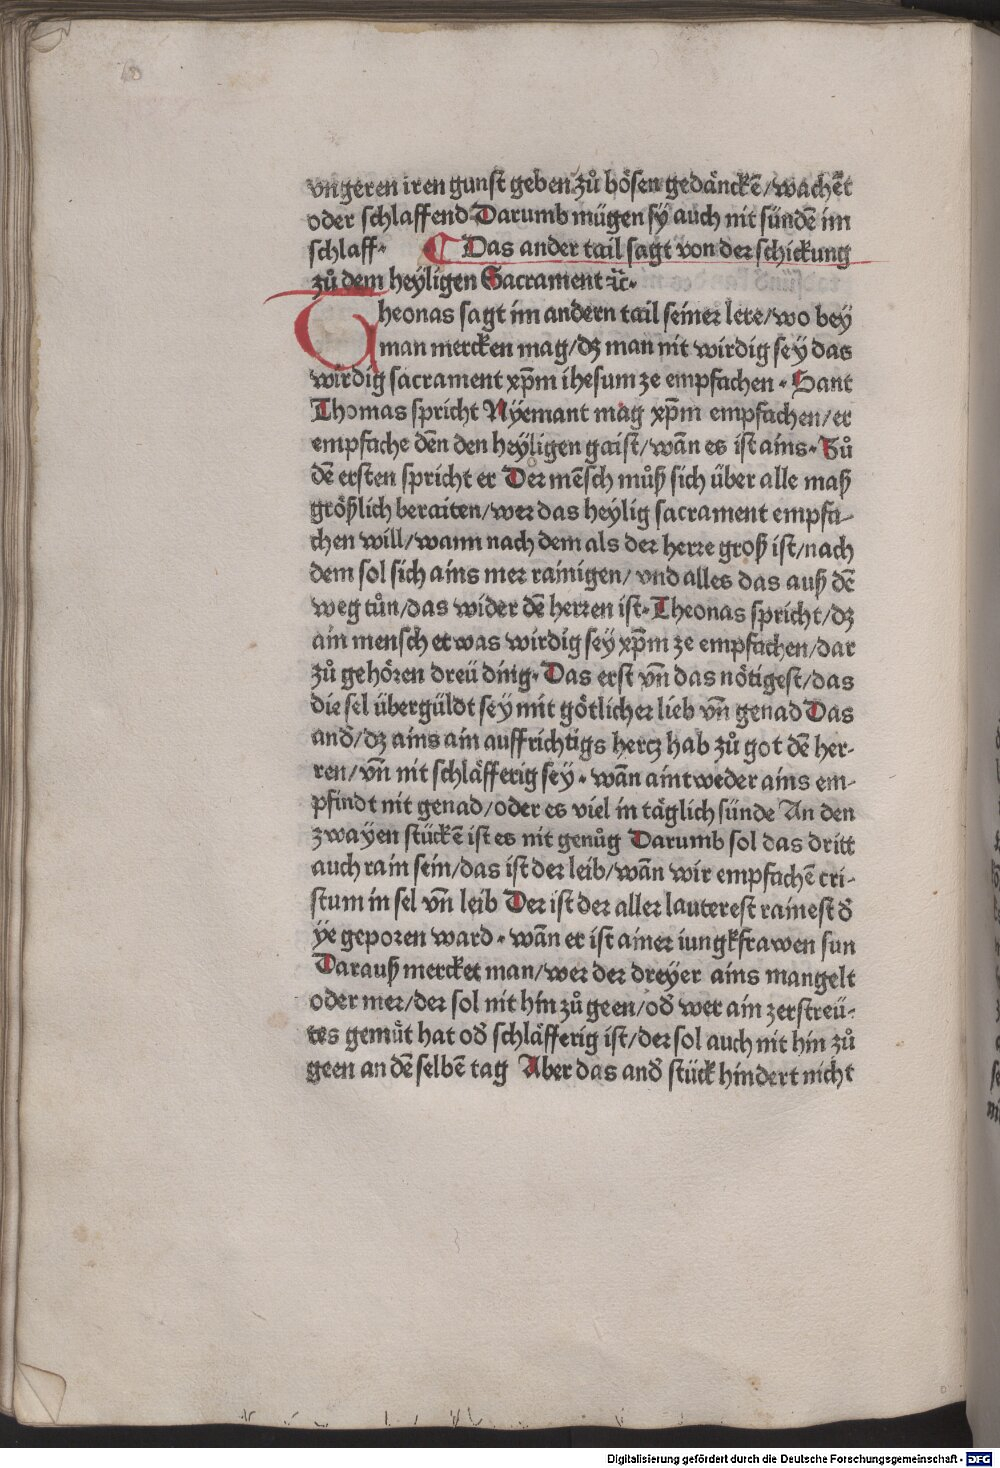 vngeren iren gunst geben zů bösen gedänckē/wachēt
oder schlaffend Darumb mügen sÿ auch nit sündē im
schlaff· Das ander tail sagt von der schickung
zů dem heÿligen Sacrament ꝛc̄·
Theonas sagt im andern tail seiner lere/wo bey
man mercken mag/dʒ man nit wirdig seÿ das
wirdig sacrament xp̄m ihesum ze empfachen · Sant
Thomas spricht Nÿemant mag xp̄m empfachen/er
empfache dēn den heÿligen gaist/wān es ist ains· Zů
dē ersten spricht er Der mēsch můß sich über alle maß
größlich beraiten/wer das heylig sacrament empfa-
chen will/wann nach dem als der herre groß ist/nach
dem sol sich ains mer rainigen/vnd alles das auß dē
weg tůn/das wider dē herren ist· Theonas spricht/dʒ
ain mensch etwas wirdig sey xp̄m ze empfachen/dar
zů gehören dreü ding· Das erst vn̄ das nötigest/das
die sel übergüldt seÿ mit götlicher lieb vn̄ genad Das
and̄/dʒ ains ain auffrichtigs hercz hab zů got dē her-
ren/vn̄ nit schläfferig sey · wān aintweder ains em-
pfindt nit genad/oder es viel in täglich sünde An den
zwayen stückē ist es nit genůg Darumb sol das dritt
auch rain sein/das ist der leib/wān wir empfachē cri-
stum in sel vn̄ leib Der ist der aller lauterest rainest d̄
ÿe geporen ward · wān er ist ainer iungkfrawen sun
Darauß mercket man/wer der dreyer ains mangelt
oder mer/der sol nit hin zů geen/od̄ wer ain zerstreü-
tes gemüt hat od̄ schläfferig ist/der sol auch nit hin zů
geen an dē selbē tag Aber das and̄ stück hindert nicht
Digitalisierung gefördert durch die Deutsche Forschungsgemeinschaft - DFG